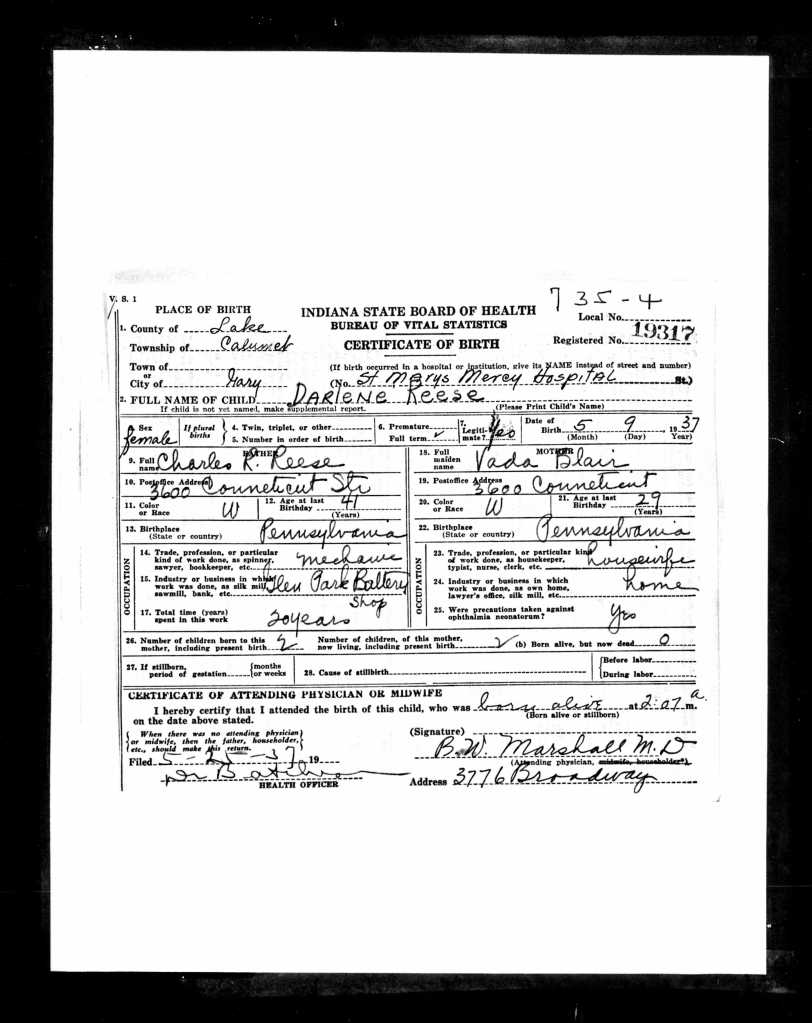 V. S. 1
735-4
PLACE OF BIRTH
INDIANA STATE BOARD OF HEALTH
Local No.
1. County of Lake
BUREAU OF VITAL STATISTICS
19317
Township of Calumet
CERTIFICATE OF BIRTH
Registered No.
Town of
or
(If birth occurred in a hospital or institution, give its NAME instead of street and number)
City of Gary
(No. St Marys Mercy Hospital St.)
2. FULL NAME OF CHILD DARLENE REESE
If child is not yet named, make supplemental report.
(Please Print Child's Name)
3. Sex female
If plural births
4. Twin, triplet, or other
5. Number in order of birth
6. Premature
Full term ✓
7. Legitimate? Yes
Date of Birth 5 9 1937
(Month) (Day) Year)
FATHER
9. Full name Charles R. Reese
10. Postoffice Address 3600 Conneticut Str
11. Color or Race W
12. Age at last Birthday 41
(Years)
13. Birthplace Pennsylvania
(State or country)
OCCUPATION
14. Trade, profession, or particular
kind of work done, as spinner,
sawyer, bookkeeper, etc. mechanic
15. Industry or business in which
work was done, as silk mill,
sawmill, bank, etc. Glen Park Battery
Shop
17. Total time (years)
spent in this work 20 years
MOTHER
18. Full maiden name Vada Blair
19. Postoffice Address 3600 Conneticut
20. Color or Race W
21. Age at last Birthday 29
(Years)
22. Birthplace Pennsylvania
(State or country)
OCCUPATION
23. Trade, profession, or particular kind
of work done, as housekeeper,
typist, nurse, clerk, etc. housewife
24. Industry or business in which
work was done, as own home,
lawyer's office, silk mill, etc. home
25. Were precautions taken against
ophthalmia neonatorum? Yes
26. Number of children born to this
mother, including present birth 2
Number of children, of this mother,
now living, including present birth 2
(b) Born alive, but now dead 0
27. If stillborn,
period of gestation
{months
or weeks
28. Cause of stillbirth
{Before labor
During labor
CERTIFICATE OF ATTENDING PHYSICIAN OR MIDWIFE
I hereby certify that I attended the birth of this child, who was born alive at 2:07 a m.
(Born alive or stillborn)
on the date above stated.
When there was no attending physician
or midwife, then the father, householder,
etc., should make this return.
(Signature) B.W. Marshall M.D
(Attending physician, midwife, householder*)
Filed 5-25-37, 19
HEALTH OFFICER
Address 3776 Broadway